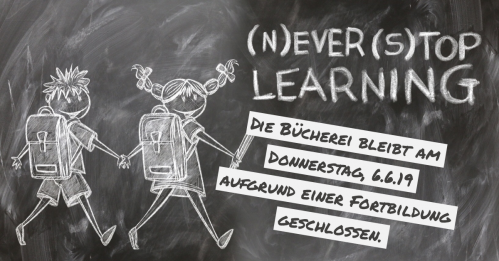 (N)EVER (S)TOP
LEARNING
DIE BÜCHEREI BLEIBT AM
DONNERSTAG, 6.6.19
AUFGRUND EINER FORTBILDUNG
GESCHLOSSEN.